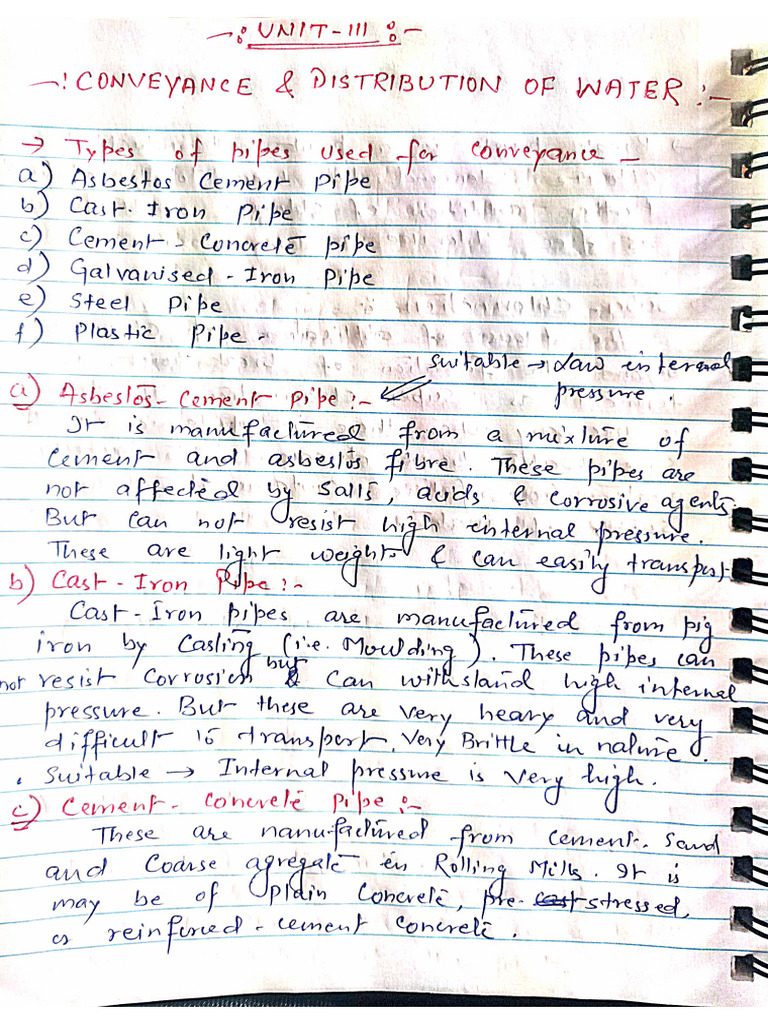 -: UNIT-III :-
-: CONVEYANCE & DISTRIBUTION OF WATER :-
→ Types of pipes used for conveyance -
a) Asbestos Cement pipe
b) Cast-Iron pipe
c) Cement-Concrete pipe
d) Galvanised-Iron Pipe
e) Steel Pipe
f) Plastic Pipe -
suitable → Law internal
pressure.
a) Asbestos-Cement pipe :-
It is manufactured from a mixture of
cement and asbestos fibre. These pipes are
not affected by salts, acids & corrosive agents.
But can not resist high internal pressure.
These are light weight & can easily transport
b) Cast-Iron Pipe :-
Cast-Iron pipes are manufactured from pig
iron by Casting (i.e. Moulding). These pipes can
not resist Corrosion but & can withstand high internal
pressure. But these are very heavy and very
difficult to transport, Very Brittle in nature.
. Suitable → Internal pressure is very high.
c) Cement-Concrete pipe :-
These are manufactured from cement. Sand
and Coarse agregate in Rolling Mills. It is
may be of plain concrete, pre-cast stressed,
or reinforced-cement concrete.